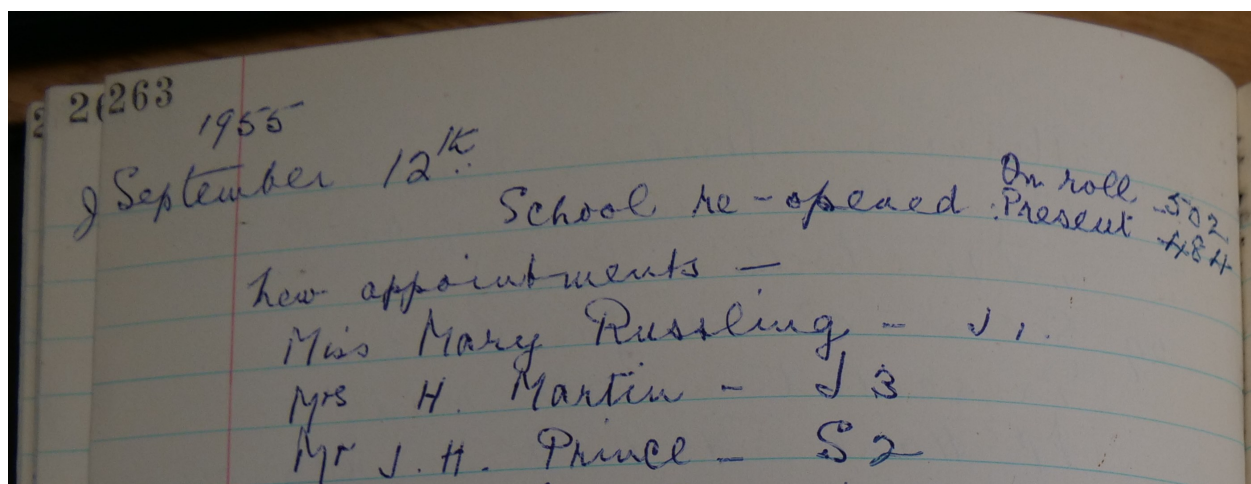 263
1955
September 12th
School re-opened On roll 502
Present 484
New appointments —
Miss Mary Russling - J 1.
Mrs H. Martin - J 3
Mr J. H. Prince - S 2